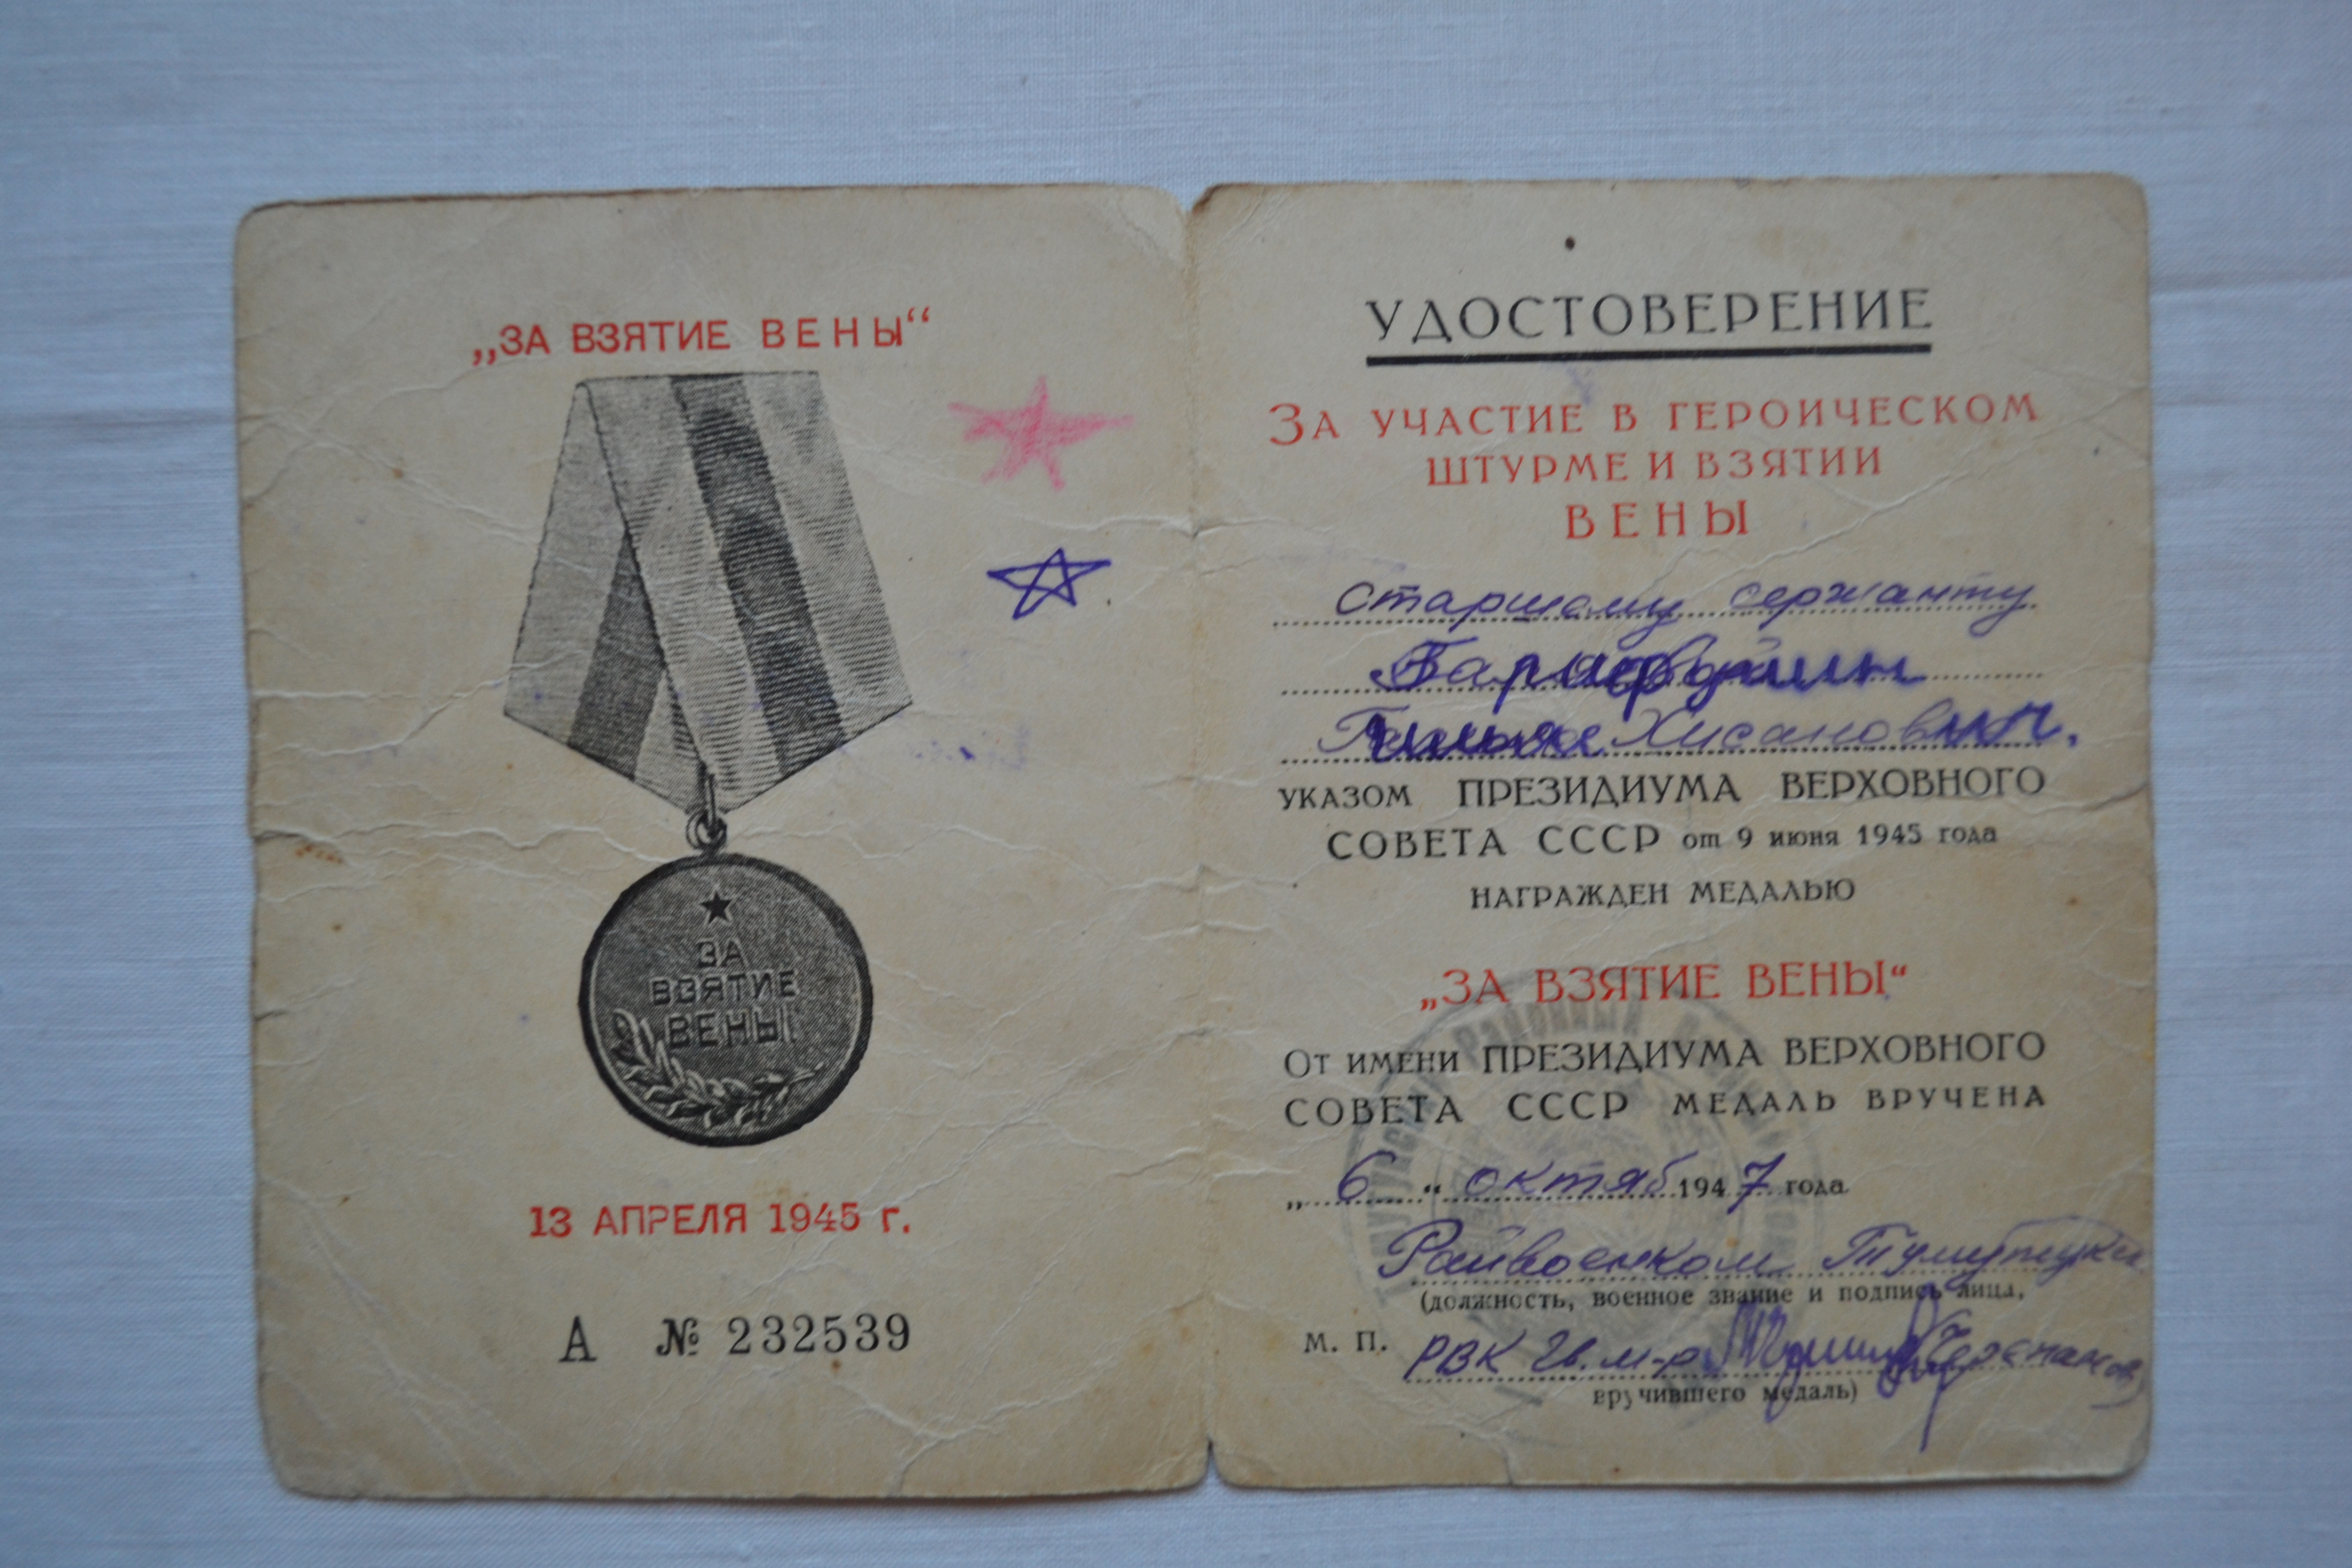 „ЗА ВЗЯТИЕ ВЕНЫ“
ЗА
ВЗЯТИЕ
ВЕНЫ
13 АПРЕЛЯ 1945 г.
А № 232539
УДОСТОВЕРЕНИЕ
ЗА УЧАСТИЕ В ГЕРОИЧЕСКОМ
ШТУРМЕ И ВЗЯТИИ
ВЕНЫ
Старшему сержанту
Хисанович.
УКАЗОМ ПРЕЗИДИУМА ВЕРХОВНОГО
СОВЕТА СССР от 9 июня 1945 года
НАГРАЖДЕН МЕДАЛЬЮ
„ЗА ВЗЯТИЕ ВЕНЫ“
ОТ ИМЕНИ ПРЕЗИДИУМА ВЕРХОВНОГО
СОВЕТА СССР МЕДАЛЬ ВРУЧЕНА
„6“ октяб 1947 года
Райвоенком
(должность, военное звание и подпись лица,
М. П. РВК Гв. м-р
вручившего медаль)